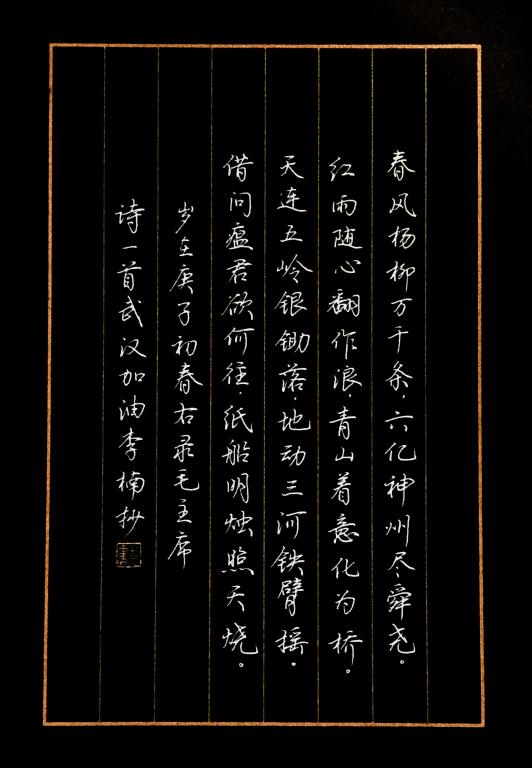 春风杨柳万千条，六亿神州尽舜尧。
红雨随心翻作浪，青山着意化为桥。
天连五岭银锄落，地动三河铁臂摇。
借问瘟君欲何往，纸船明烛照天烧。
岁在庚子初春右录毛主席
诗一首武汉加油李楠抄